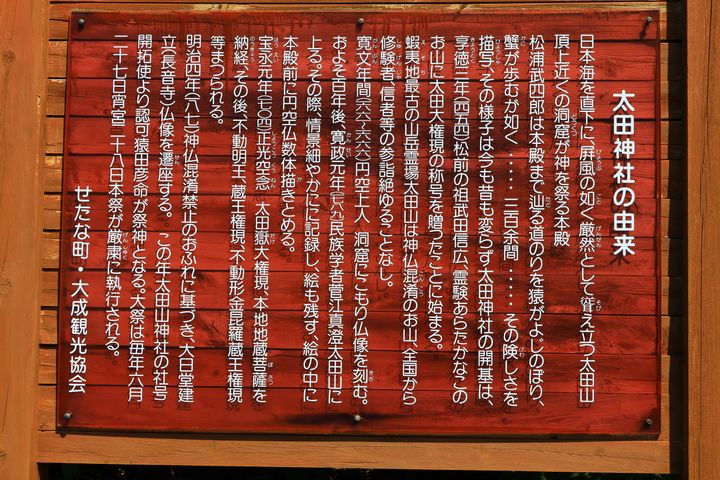 太田神社の由来
日本海を直下に、屏風の如く厳然として聳え立つ太田山
頂上近くの洞窟が神を祭る本殿
松浦武四郎は本殿まで辿る道のりを猿がよじのぼり、
蟹が歩むが如く‥‥‥三百余間‥‥‥その険しさを
描写、その様子は今も昔も変らず太田神社の開基は、
享徳三年(一四五四)松前の祖武田信広、霊験あらたかなこの
お山に太田大権現の称号を贈ったことに始まる。
蝦夷地最古の山岳霊場太田山は神仏混淆のお山、全国から
修験者、信者等の参詣絶ゆることなし。
寛文年間(一六六一~一六六六)円空上人、洞窟にこもり仏像を刻む。
およそ百年後、寛政元年(一七八九)民族学者菅江真澄太田山に
上る。その際、情景細やかにに記録し、絵も残す、絵の中に
本殿前に円空仏数体描きとめる。
宝永元年(一七〇四)正光空念 太田嶽大権現、本地地蔵菩薩を
納経、その後、不動明王、蔵王権現、不動形金毘羅蔵王権現
等まつられる。
明治四年(一八七一)神仏混淆禁止のおふれに基づき、大日堂建
立(長音寺)仏像を遷座する。この年太田山神社の社号
開拓使より認可猿田彦命が祭神となる。大祭は毎年六月
二十七日宵宮二十八日本祭が厳粛に執行される。
せたな町・大成観光協会